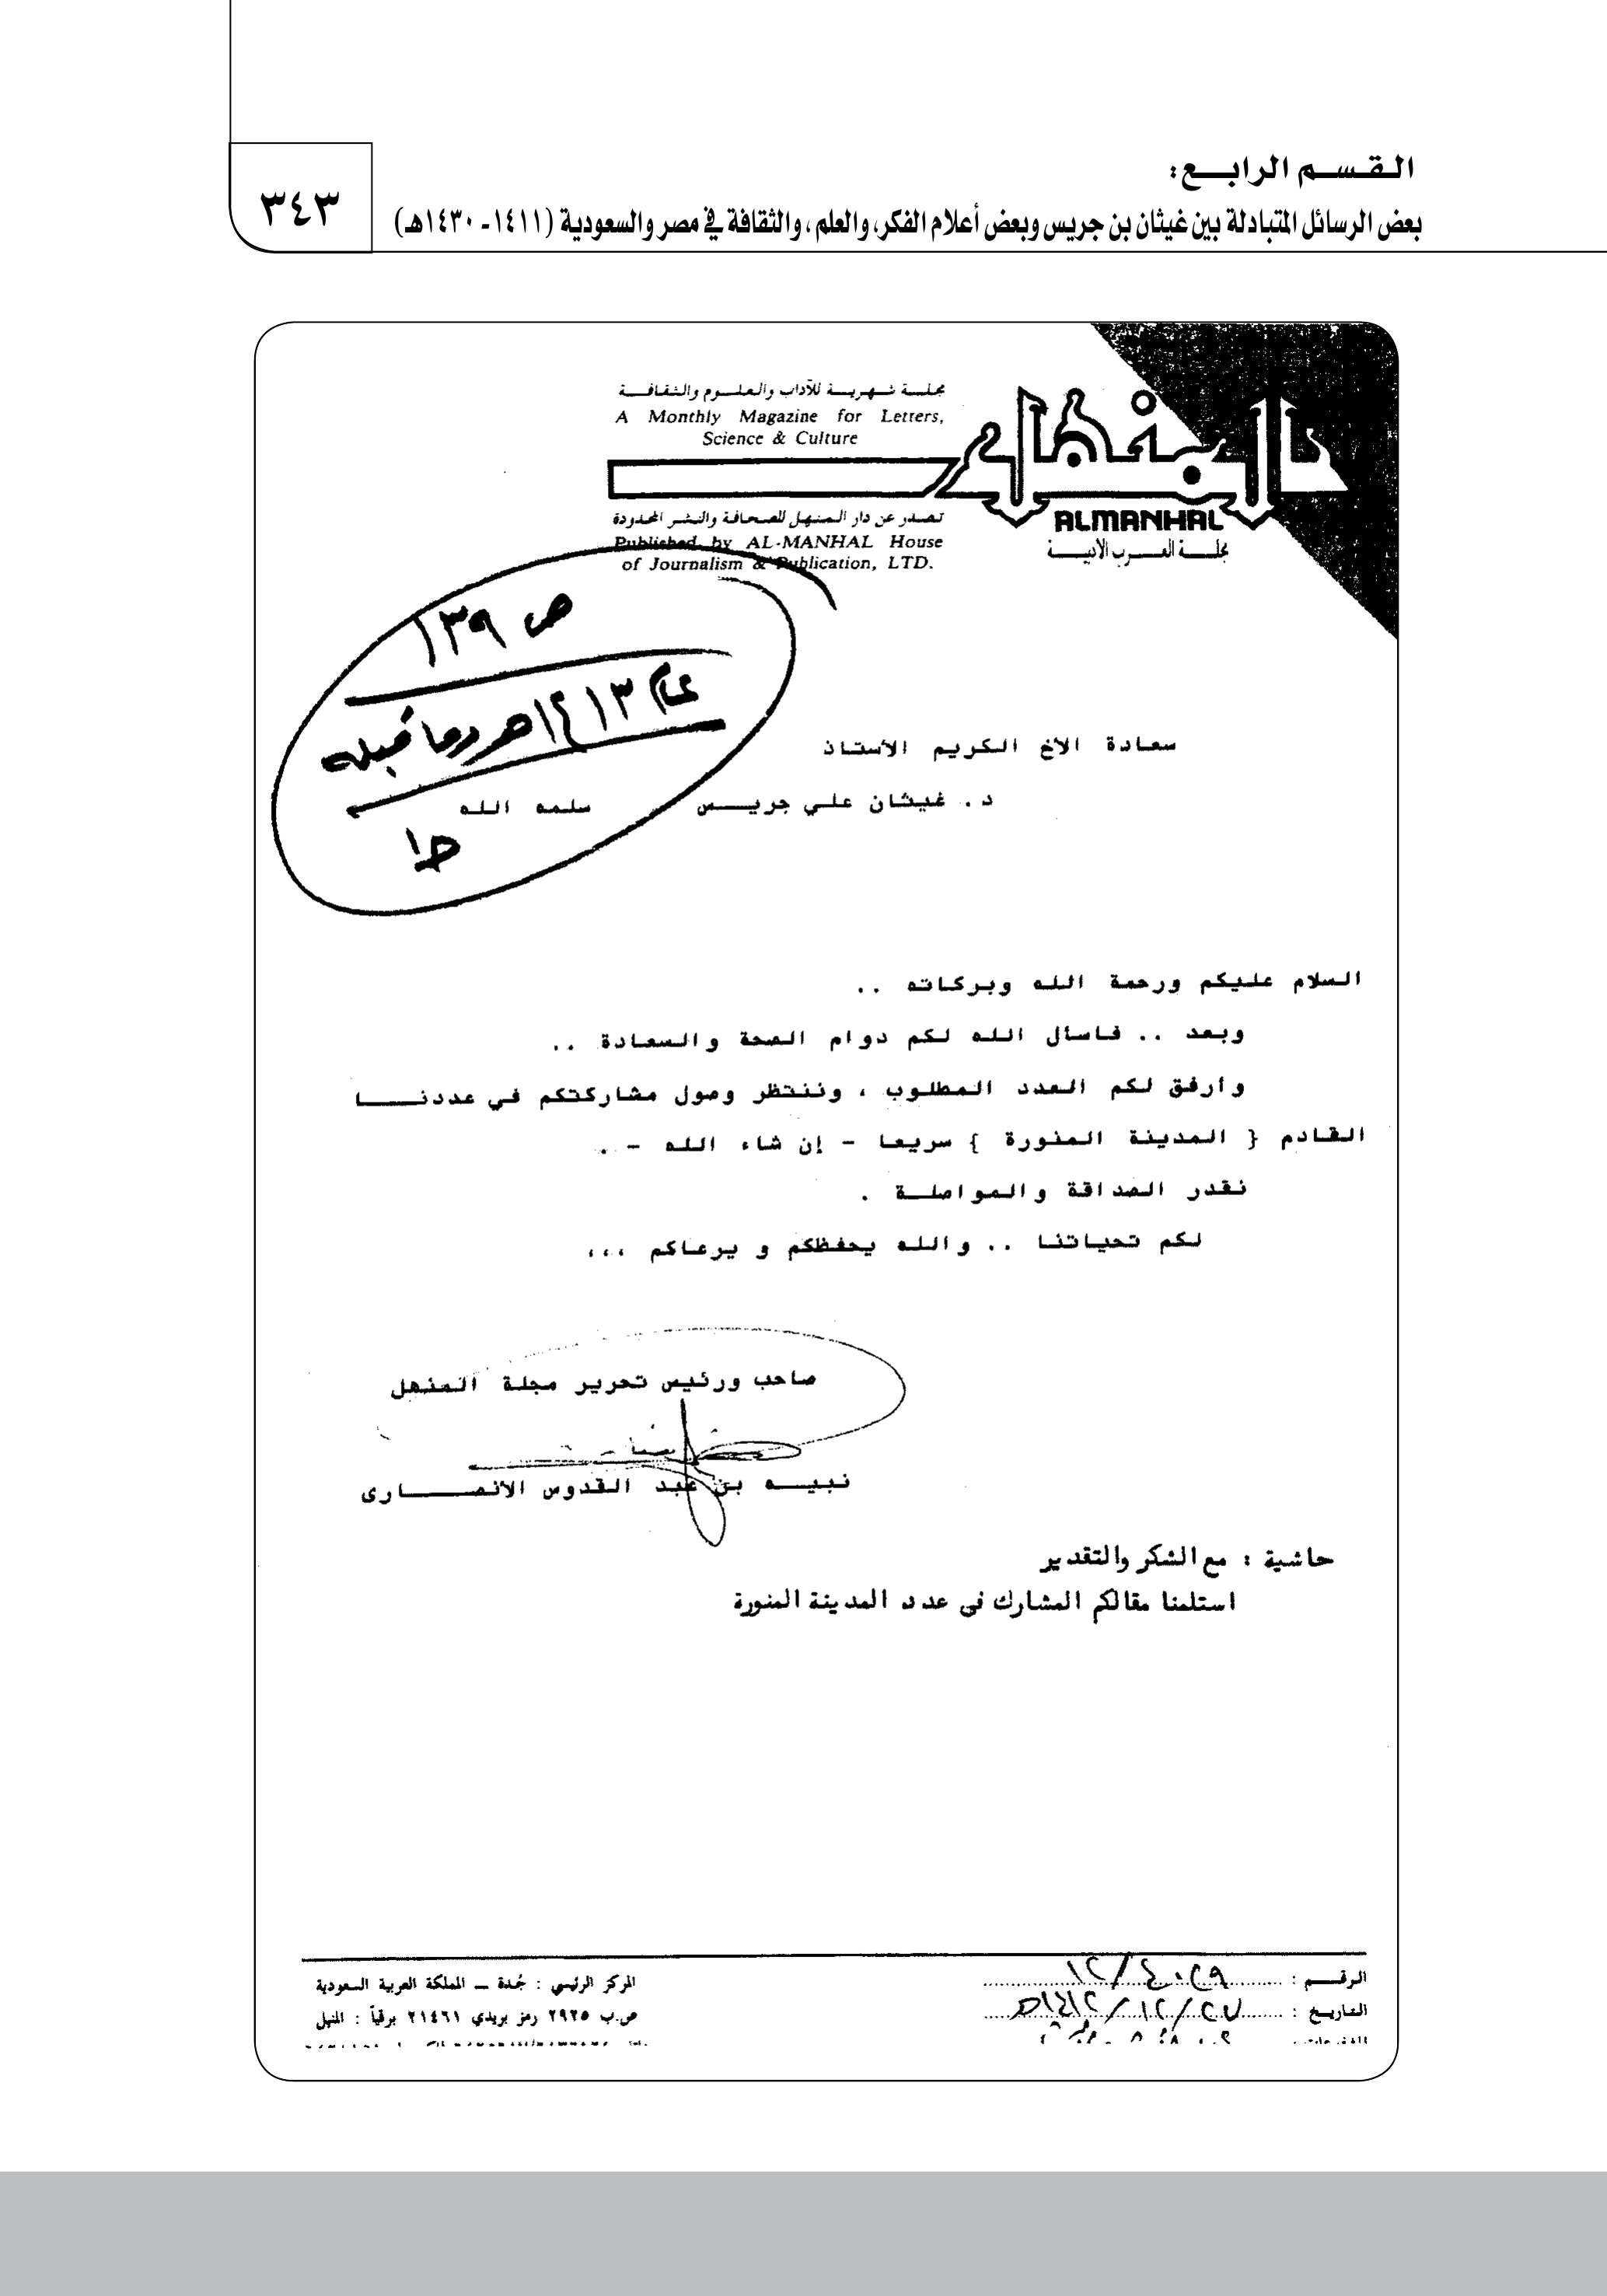 القسم الرابع:
بعض الرسائل المتبادلة بين غيثان بن جريس وبعض أعلام الفكر، والعلم، والثقافة في مصر والسعودية (١٤١١- ١٤٣٠هـ)
٣٤٣
مجلة شهرية للآداب والعلوم والثقافة
A Monthly Magazine for Letters,
Science & Culture
المنهل
ALMANHAL
مجلة العرب الأدبية
تصدر عن دار المنهل للصحافة والنشر المحدودة
Published by AL-MANHAL House
of Journalism & Publication, LTD.
ص ١٣٩
عام ١٤١٣هـ وما قبله
ط١
سعادة الأخ الكريم الأستاذ
د. غيثان علي جريس سلمه الله
السلام عليكم ورحمة الله وبركاته ..
وبعد .. فاسأل الله لكم دوام الصحة والسعادة ..
وأرفق لكم العدد المطلوب ، وننتظر وصول مشاركتكم في عددنا
القادم { المدينة المنورة } سريعا - إن شاء الله - .
نقدر الصداقة والمواصلة .
لكم تحياتنا .. والله يحفظكم و يرعاكم ،،،
صاحب ورئيس تحرير مجلة المنهل
نبيه بن عبد القدوس الأنصارى
حاشية : مع الشكر والتقدير
استلمنا مقالكم المشارك فى عدد المدينة المنورة
الرقم : ٤٠٢٩/١٢
التاريخ : ٢٧/١٢/١٤١٢هـ
المركز الرئيسي : جُدة ــ المملكة العربية السعودية
ص.ب ٢٩٢٥ رمز بريدي ٢١٤٦١ برقياً : المنهل